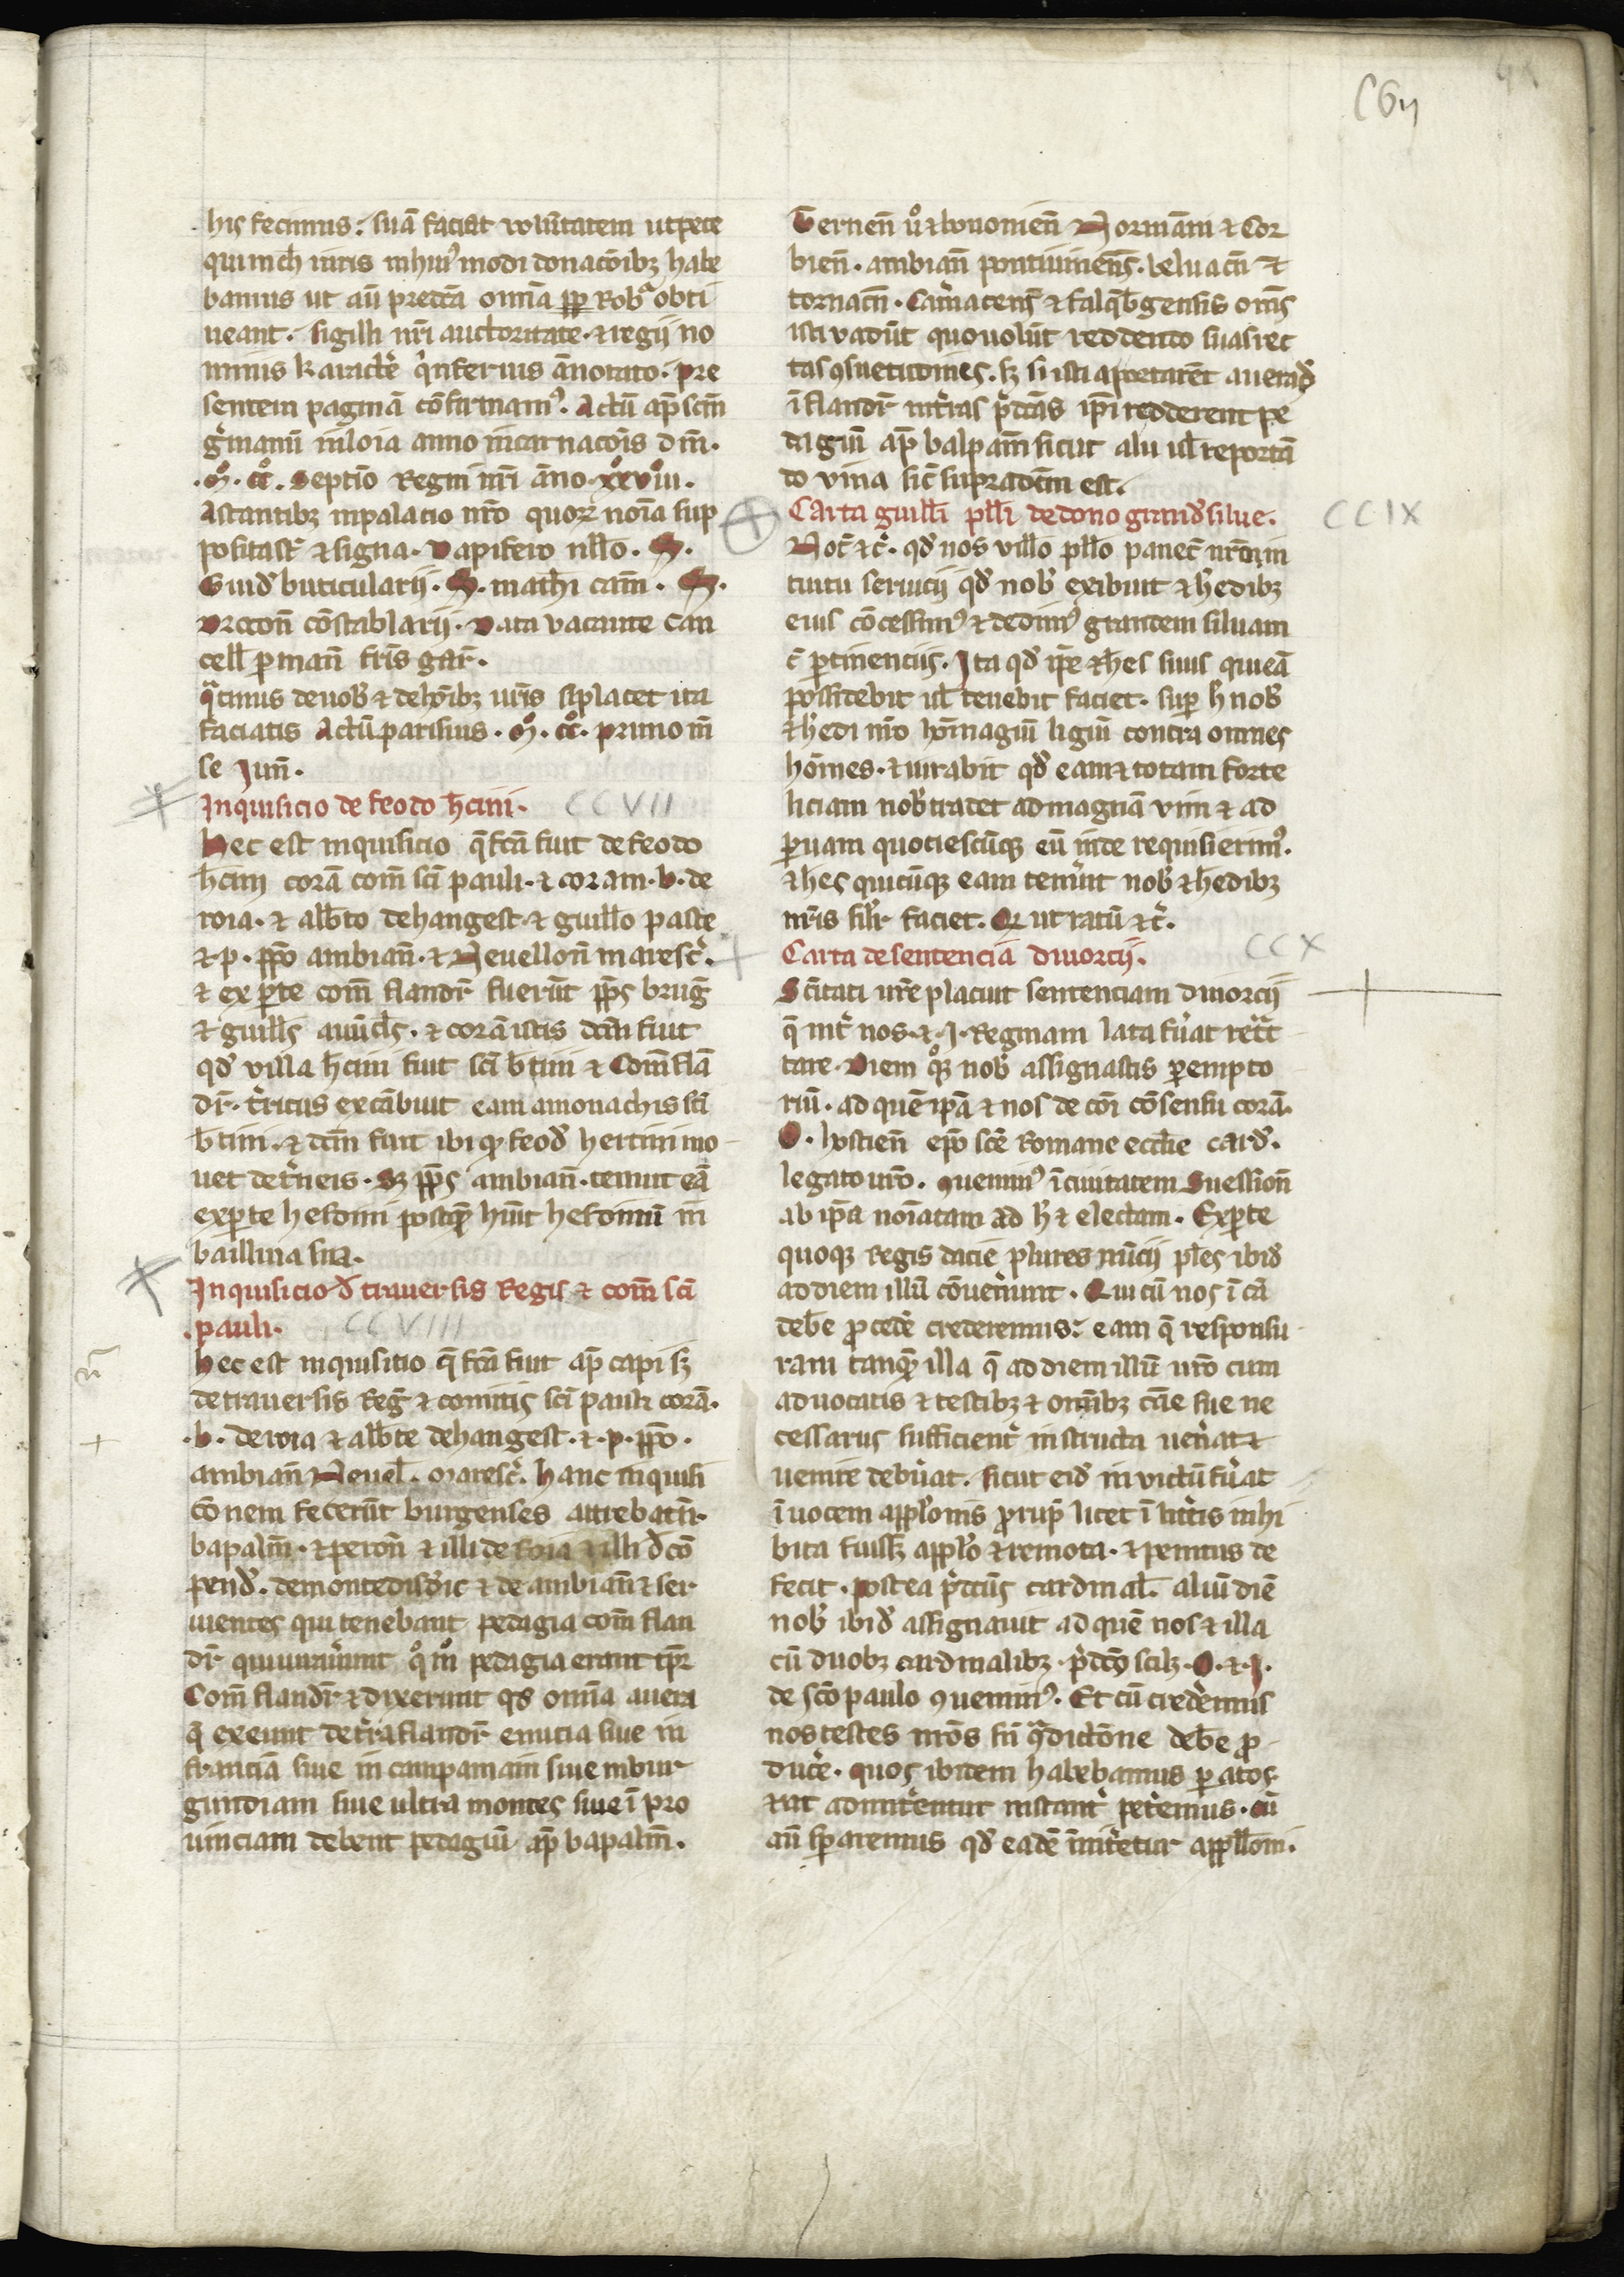 his fecimus: suā faciat volūtatem ut pete
qui nich iuris in hui'modi donacōibʒ habe
bamus ut aū predcā omīa ipī Robᵒ obti
neant. sigilli nrī auctoritate. ⁊ regii no
minis karactere inferius ānotato. pre
sentem paginā cōfirmam'. Actū ap̄ scm̄
ḡmanū in loia anno incarnacōis dm̄.
.M. cc̊. septīo Regni nrī āno. xxviii.
Astantibʒ in palacio nrō quorꝝ noīa sup
posita st̄ ⁊ signa. Dapifero nllo. S.
Guid' buticularii. S. mathī cam̄. S.
Drocon̄ cōstablarii. Data vacante can
cell p man̄ fris gar̄.
q̄tinus de uob' ⁊ de hōibʒ urīs si placet ita
faciatis Actū parisius. M. cc̊. primo m̄
se Iun̄.
Inquisicio de feodo hcini. CCVII
Hec est inquisicio q̄ fcā fuit de feodo
hcini corā com̄ scī pauli. ⁊ coram. b. de
roia. ⁊ albto de hangest ⁊ guillo paste
⁊ p. ppō ambian̄. ⁊ Neuellon̄ maresc̄.
⁊ ex pte com̄ flandr̄ fuerūt ppṡ bruḡ
⁊ corā istis dcm̄ fuit
qd' villa hcini fuit scī btini ⁊ Com̄ flā
dr̄. t̄ricus excābiuit eam a monachis scī
btini. ⁊ dcm̄ fuit ibi qd' feod' hertini mo
uet de t̄neis. Sʒ ppṡ ambian̄. tenuit eā
ex pte hesdini postq̄ huīt hesdinū in
bailliua sua.
Inquisicio d' trauersis Regis ⁊ com̄ scī
pauli. CCVIII
Hec est inquisitio q̄ fcā fuit ap̄ capi sʒ
de trauersis Reḡ ⁊ comitis scī pauli corā.
.b. de roia ⁊ albte de hangest. ⁊. p. ppō.
ambian̄ Neuel̄. maresc̄. hanc inquisi
cōnem fecerūt burgenses attrebatn̄.
bapalm̄. ⁊ peron̄ ⁊ illi de roia ⁊ illi d' cō
pend'. de monte disd'ic ⁊ de ambian̄ ⁊ ser
uientes qui tenebant pedagia com̄ flan
dr̄ qui iurauint pedagia erant tp̄r
Com̄ flandr̄ ⁊ dixerunt qd' omīa auera
q̄ exeunt de t̄ra flandr̄ euntia siue in
franciā siue in campaniam siue in bur
gundiam siue ultra montes siue ī pro
uinciam debent pedagiū ap̄ bapalm̄.
Teruen̄ u° ⁊ bononien̄ Normām ⁊ Cor
bien̄. ambian̄ pontiuiens̄. beluacn̄ ⁊
tornacn̄. Cam̄acens̄ ⁊ falqb'gensis om̄s
isti vadūt quo uolūt reddendo suas rec
tas ꝯsuetudines. sʒ si isti aportarēt auera d'
ī flandr̄ int̄ras p̄dcās ip̄i redderent pe
dagiū ap̄ balpam̄ sicut alii ul' reportā
do vina sic̄ supradcm̄ est.
Carta guilli plli de dono grand'silue. CCIX
Not̄ ⁊c̄. qd' nos villo pllo panet̄ nrō in
tuitu seruicii qd' nob' exibuit ⁊ h'edibʒ
eius cōcessim' ⁊ dedim' grandem siluam
c̄ ptinenciis. Ita qd' ip̄e ⁊ hes suus qui eā
possidebit ul' tenebit faciet. sup h' nob'
⁊ h'edi nrō hōmagiū ligiū contra omnes
hōmes. ⁊ iurabit qd' eam ⁊ totam forte
liciam nob' tradet ad magnā vim ⁊ ad
paruam quotiescūqʒ eū inde requisierim'.
⁊ hes quicūqʒ eam tenūit nob' ⁊ h'edibʒ
nrīs silr faciet. Qd' ut ratū ⁊c̄.
Carta de sentencia diuorcii. CCX
Scītati urē placuit sentenciam diuorcii
q̄ int̄ nos. ⁊. I. Reginam lata fu'at ret̄c
tare. Diem qʒ nob' assignastis perempto
riū. ad quē ip̄a ⁊ nos de cōi cōsensu corā.
O. hostien̄ ep̄o scē Romane ecclie card'.
legato urō. ꝯuenim' ī ciuitatem Suession̄
ab ip̄a noīatam ad h' ⁊ electam. Ex pte
quoqʒ Regis dacie plures nūcii p̄les ibid'
ad diem illū cōuen'unt. Qui cū nos ī cā
deb'e procede' crederemus: eam q̄ responsu
ram tanq̄ illa q̄ ad diem illū urō cum
aduocatis ⁊ testibʒ ⁊ omībʒ cāe sue ne
cessariis sufficient' instructa uen'at ⁊
uenire debu'at. sicut eid' iniūctū fu'at
ī uocem applōnis prup̄ licet ī litt̄is inhi
bita fuissʒ applō ⁊ remota. ⁊ penitus de
fecit. postea p̄dcūs cardinal̄. aliū diē
nob' ibid' assignauit ad quē nos ⁊ illa
cū duobʒ cardinalibʒ. p̄dcō scilʒ. O. ⁊. I.
de scō paulo ꝯuenim'. Et cū crederemus
nos testes nrōs sn̄ ꝯ̄dictōne deb'e pro
duce'. quos ibidem habebamus paratos
⁊ ut admitt'entur instant' pet'emus. cū
aū sparemus qd' eadē īmit'etur appllōni.